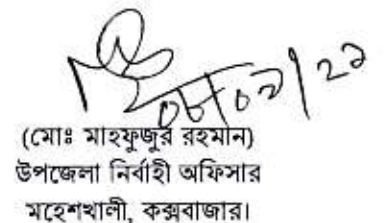 ০৮/০৯/২১
(মোঃ মাহফুজুর রহমান)
উপজেলা নির্বাহী অফিসার
মহেশখালী, কক্সবাজার।